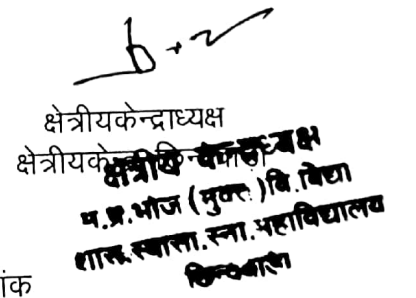 क्षेत्रीयकेन्द्राध्यक्ष
क्षेत्रीयकेन्द्र
क्षेत्रीय केन्द्राध्यक्ष
म.प्र.भोज (मुक्त) वि.विद्या
शास. स्वाशा.स्ना.महाविद्यालय
छिन्दवाड़ा
ांक